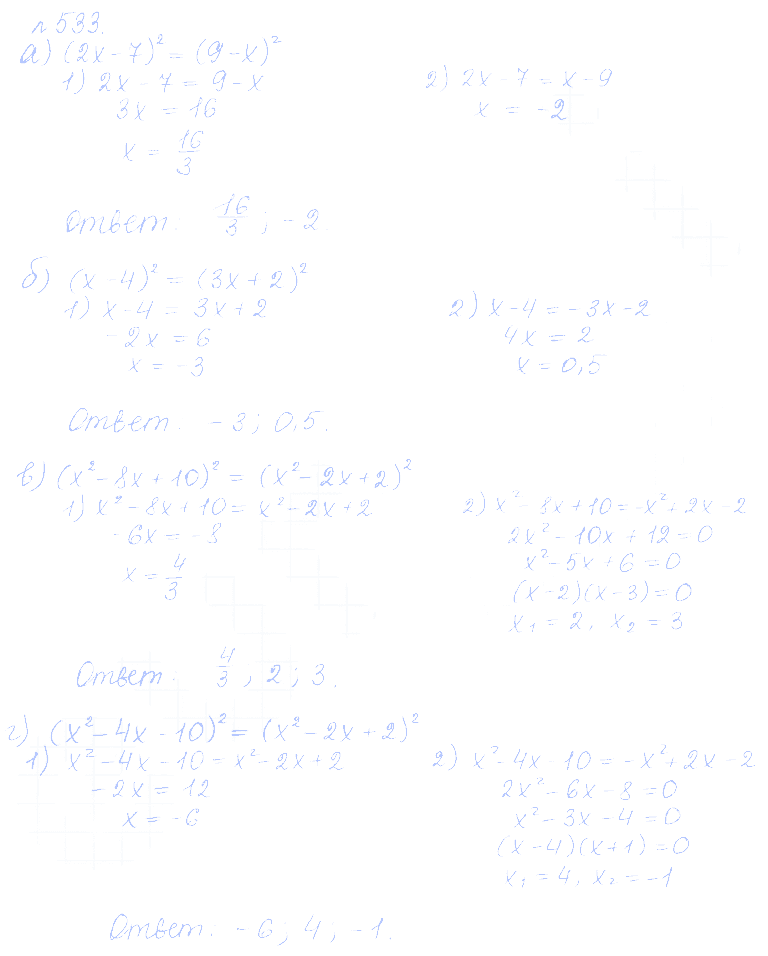 №533.
а) (2x-7)² = (9-x)²
1) 2x-7 = 9-x
3x = 16
x = 16/3
2) 2x-7 = x-9
x = -2
Ответ: 16/3; -2.
б) (x-4)² = (3x+2)²
1) x-4 = 3x+2
-2x = 6
x = -3
2) x-4 = -3x-2
4x = 2
x = 0,5
Ответ: -3; 0,5.
в) (x²-8x+10)² = (x²-2x+2)²
1) x²-8x+10 = x²-2x+2
-6x = -8
x = 4/3
2) x²-8x+10 = -x²+2x-2
2x²-10x+12=0
x²-5x+6=0
(x-2)(x-3)=0
x₁ = 2, x₂ = 3
Ответ: 4/3, 2; 3.
г) (x²-4x-10)² = (x²-2x+2)²
1) x²-4x-10 = x²-2x+2
-2x = 12
x = -6
2) x²-4x-10 = -x²+2x-2
2x²-6x-8=0
x²-3x-4=0
(x-4)(x+1)=0
x₁ = 4, x₂ = -1
Ответ: -6; 4; -1.